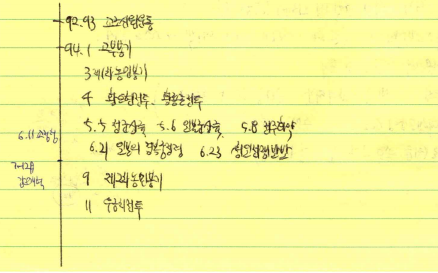 92.93 교조신원운동
94.1 고부봉기
3 제1차농민봉기
4 황토현전투, 황룡촌전투
5.5 청군상륙 5.6 일본군상륙 5.8 전주화약
6.11 교정청
6.21 일본의 경복궁점령 6.23 청일전쟁발발
7
9 제2차농민봉기
11 우금치전투